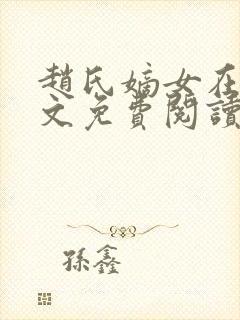 趙氏嫡女在
文免費閱讀
孫鑫